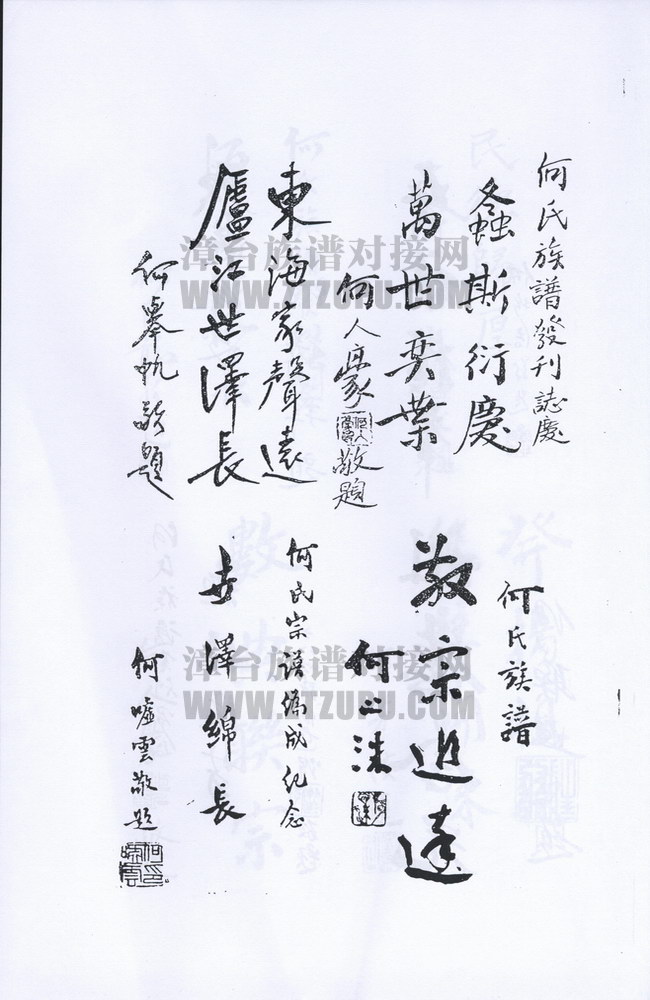 何氏族譜發刊誌慶
螽斯衍慶
萬世奕業
何人豪
敬題
東海家聲遠
廬江世澤長
何舉帆敬題
何氏族譜
敬宗追遠
何上洙
何氏宗譜編成紀念
世澤綿長
何嘘雲敬題
漳台族谱对接网
WWW.ZTZUPU.COM
漳台族谱对接网
WWW.ZTZUPU.COM